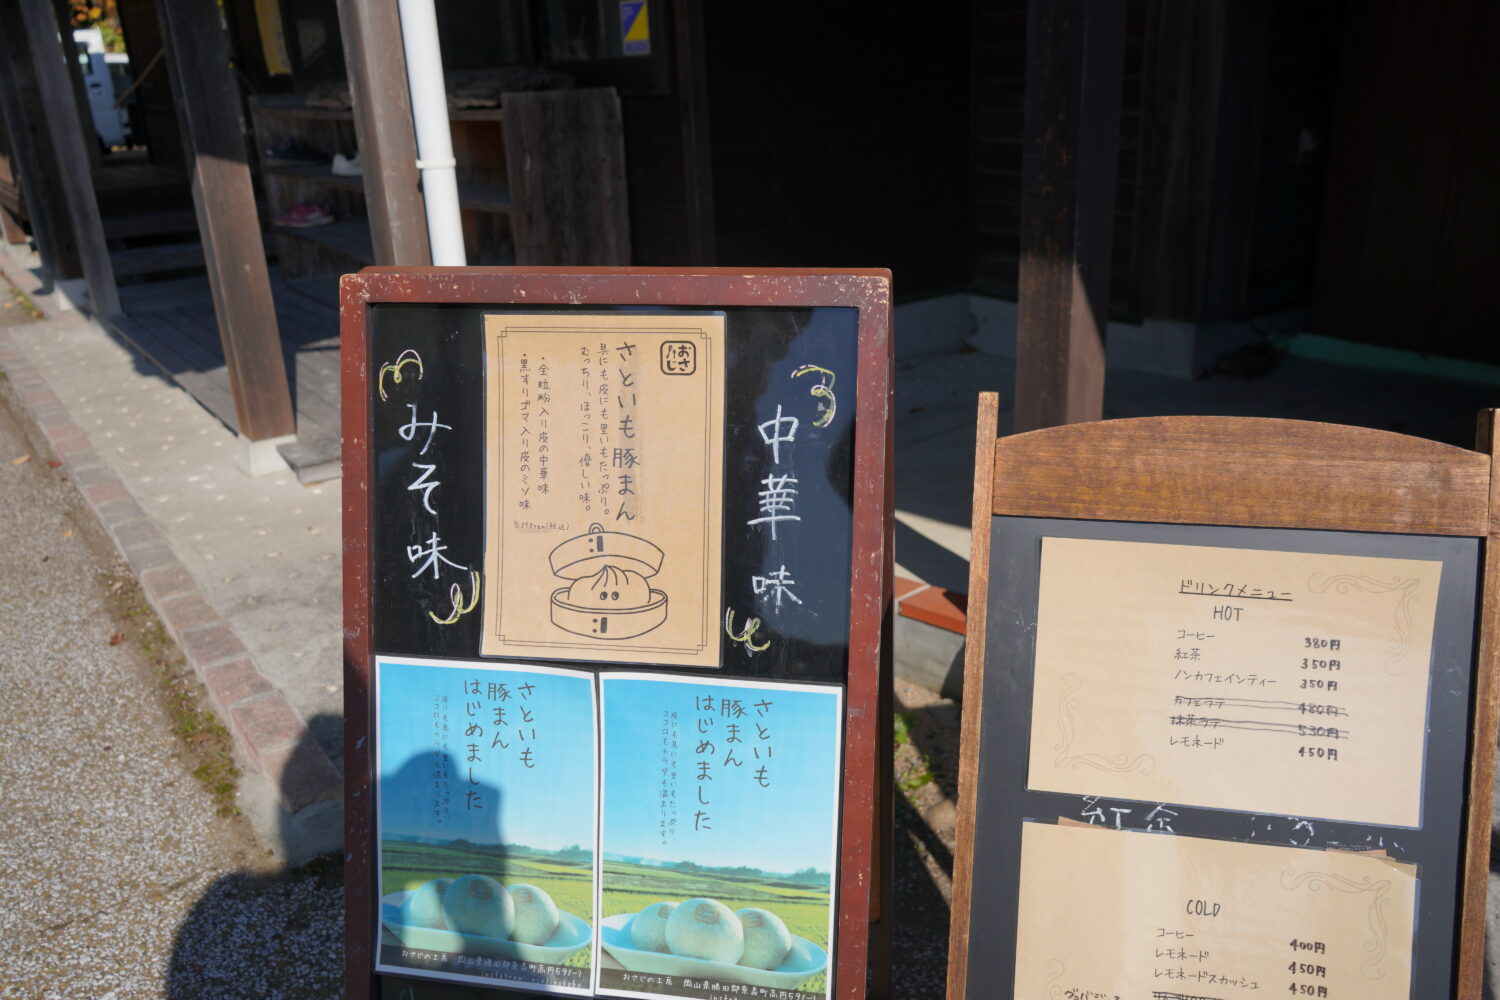 みそ味
中華味
おさふじ
さといも豚まん
具にも皮にも里いもたっぷり。
むっちり、ほっこり、優しい味。
・全粒粉入り皮の中華味
・黒すりゴマ入り皮のミソ味
さといも
豚まん
はじめました
皮にも具にも里いもたっぷり、
ココロもカラダも温まります。
おさじの工房 岡山県勝田郡奈義町高円591-1
さといも
豚まん
はじめました
皮にも具にも里いもたっぷり、
ココロもカラダも温まります。
おさじの工房 岡山県勝田郡奈義町高円591-1
ドリンクメニュー
HOT
コーヒー 380円
紅茶 350円
ノンカフェインティー 350円
カフェラテ 480円
抹茶ラテ 530円
レモネード 450円
COLD
コーヒー 400円
レモネード 450円
レモネードスカッシュ 450円